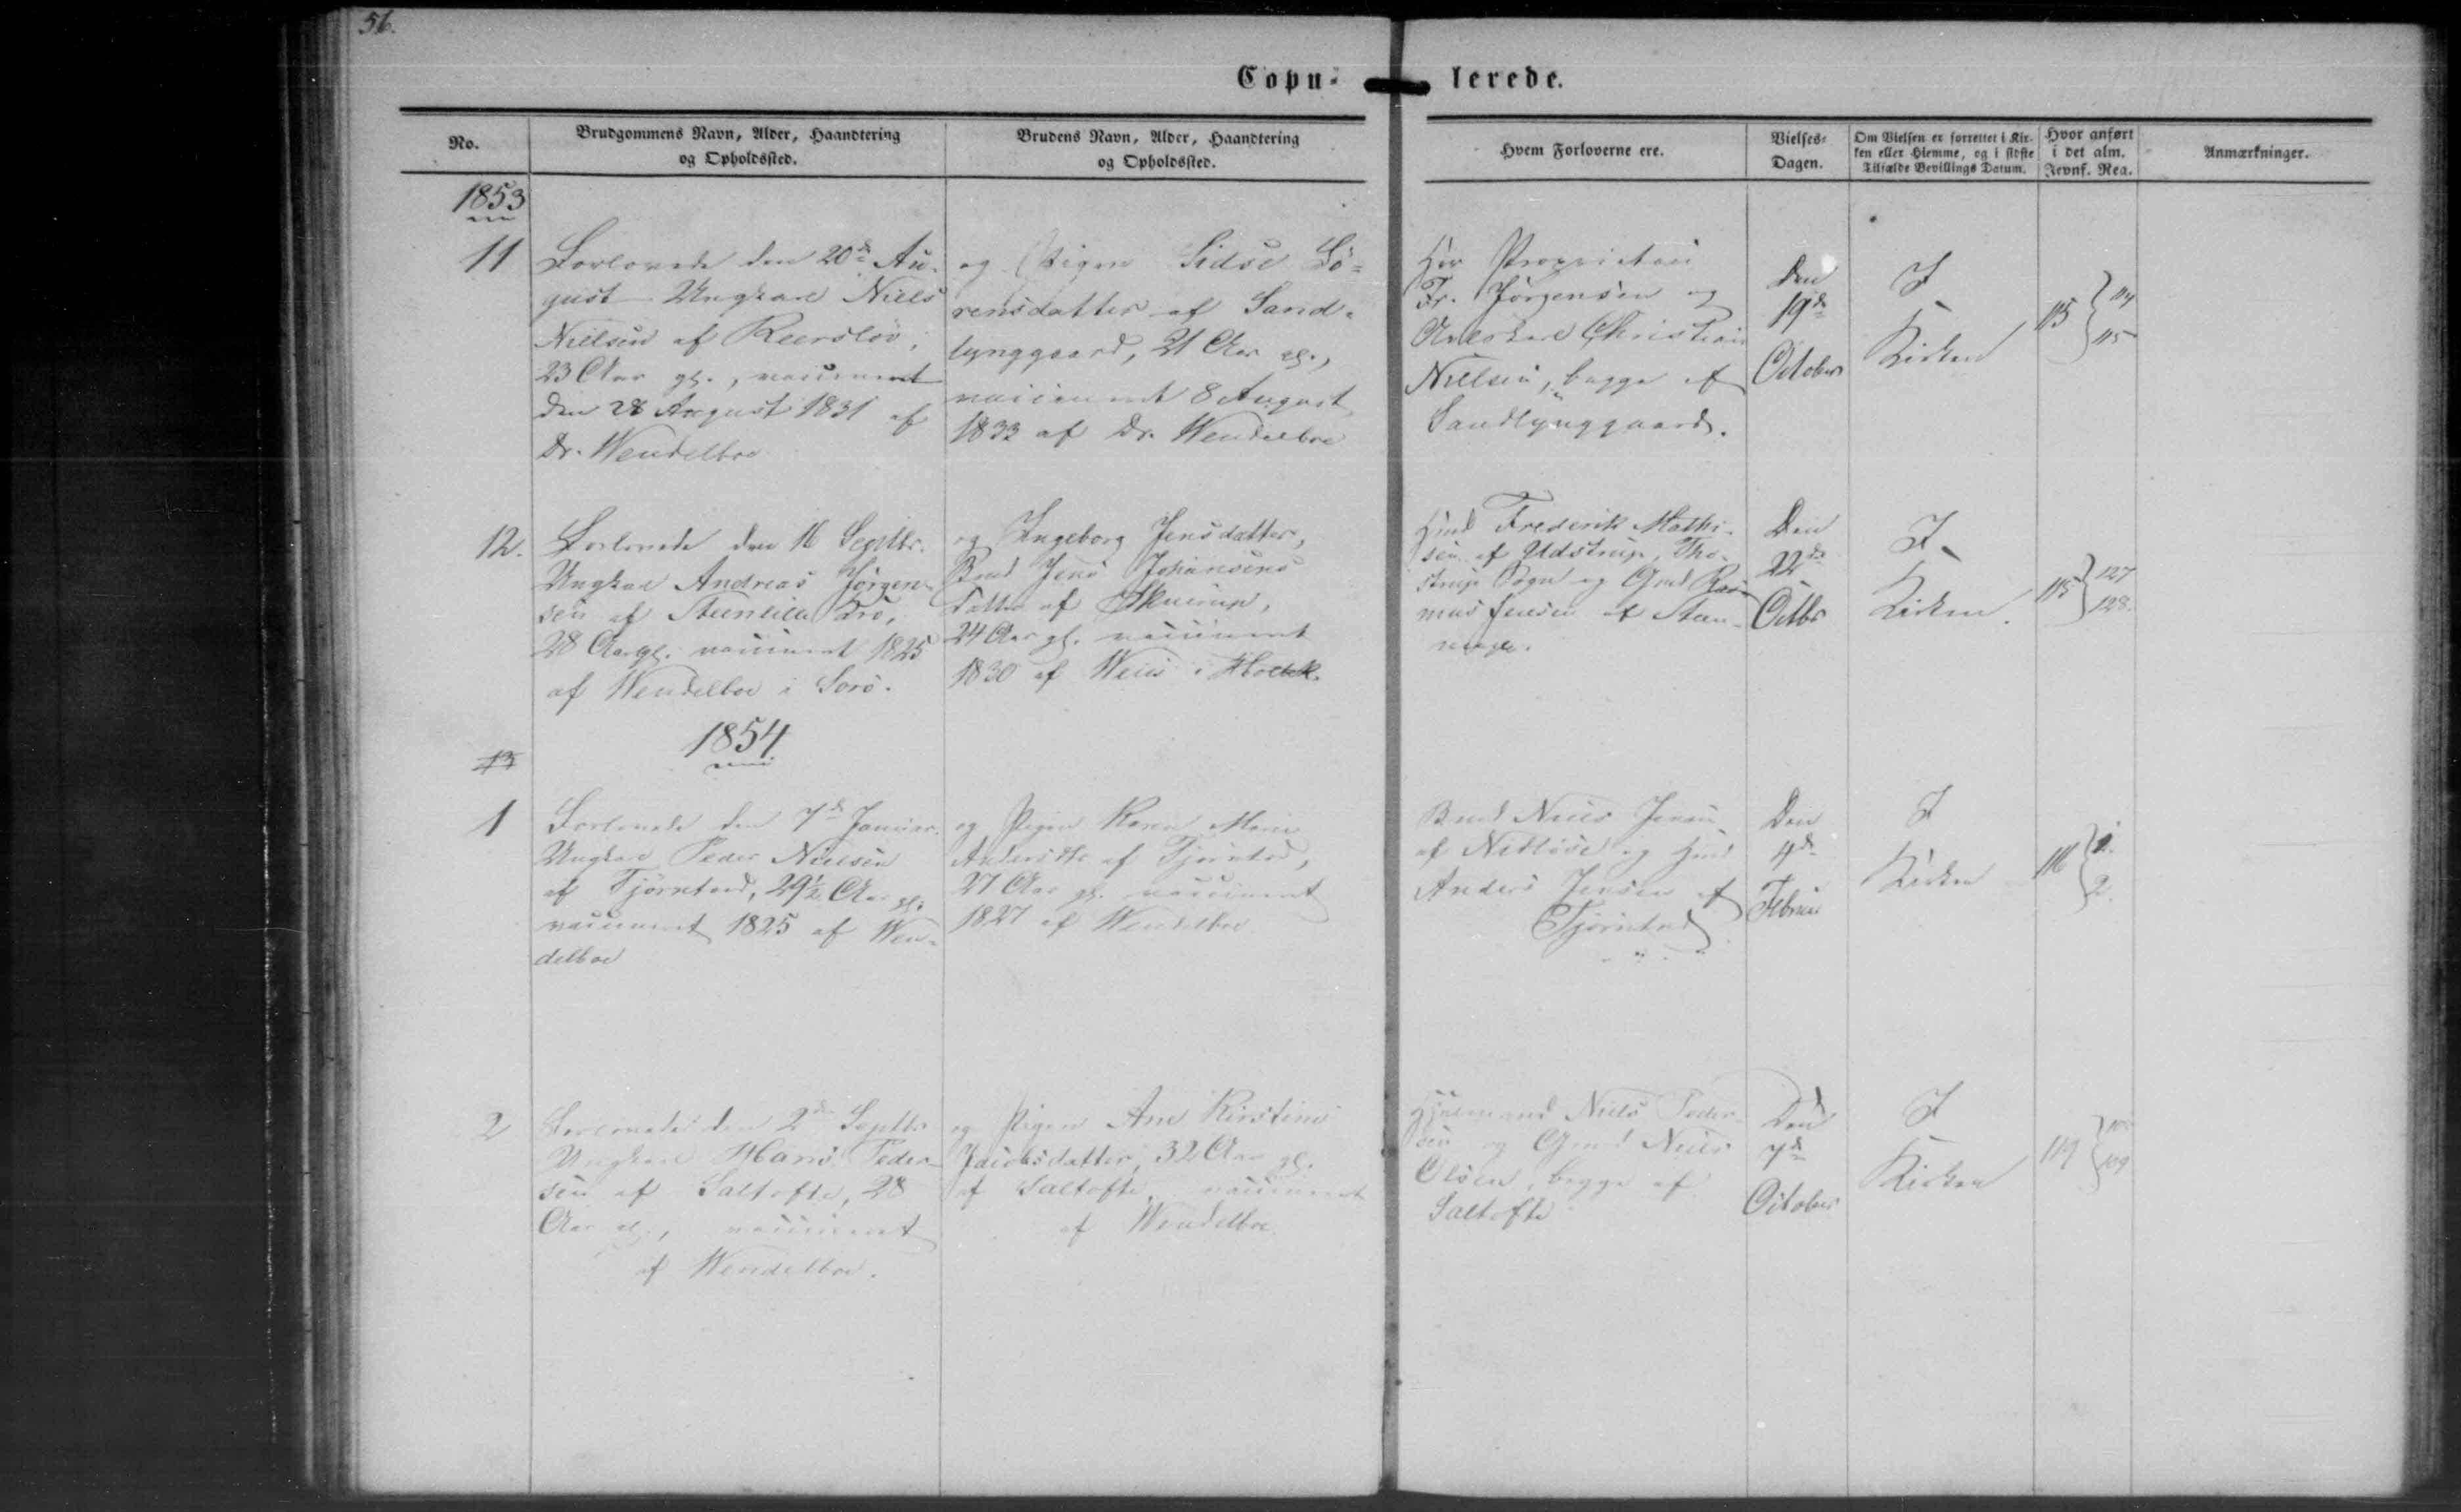 56.
Copu- lerede.
No.
Brudgommens Navn, Alder, Haandtering
og Opholdssted.
Brudens Navn, Alder, Haandtering
og Opholdssted.
Hvem Forloverne ere.
Vielses-
Dagen.
Om Vielsen er forrettet i Kir-
ken eller Hiemme, og i sidste
Tilfælde Bevillings Datum.
Hvor anført
i det alm.
Jevnf. Reg.
Anmærkninger.
1853
11
Forlovede den 20de Au-
gust Ungkarl Niels
Nielsen af Reerslev,
23 Aar gl., vaccineret
den 28 August 1831 af
Dr. Wendelboe
og Pigen Sidse Sö-
rensdatter af Sand-
lynggaard, 21 Aar gl.,
vaccineret 8 August
1833 af Dr. Wendelboe
Hr. Proprietair
Fr. Jörgensen og
Avlskarl Christian
Nielsen, begge af
Sandlynggaard.
Den
19de
October
I
Kirken
115 } 114
115
12.
Forlovede den 16 Septbr.
Ungkarl Andreas Jörgen-
sen af Steenlille
28 Aar gl. vaccineret 1825
af Wendelboe i Sorö.
og Ingeborg Jensdatter,
Bmd Jens Johansens
Datter af
24 Aar gl. vaccineret
1830 af Weis i Holbek.
Hmd Frederik Mathi-
sen af Udstrup, Tho-
strup Sogn og Gmd Ras-
mus Jensen af Steen-
Den
22de
Octbr
I
Kirken.
115 } 127
128.
1854
13
1
Forlovede den 7de Januar.
Ungkarl Peder Nielsen
af Tjørnted, 29½ Aar gl.
vaccineret 1825 af Wen-
delboe
og Pigen Karen Marie
Andersdtr. af Tjørnted,
27 Aar gl. vaccineret
1827 af Wendelboe
Bmd Niels Jensen
af Nidløse og Hmd
Anders Jensen af
Tjørnted
Den
4de
Februar
I
Kirken
116 } 1.
2.
2
Forlovede den 2den Septbr
Ungkarl Hans Peder-
sen af Saltofte, 28
Aar gl., vaccineret
af Wendelboe.
og Pigen Ane Kirstine
Jacobsdatter, 32 Aar gl.
af Saltofte, vaccineret
af Wendelboe
Huusmand Niels Peder-
sen og Gmd Niels
Olsen, begge af
Saltofte
Den
7de
October
I
Kirken
119 }
109